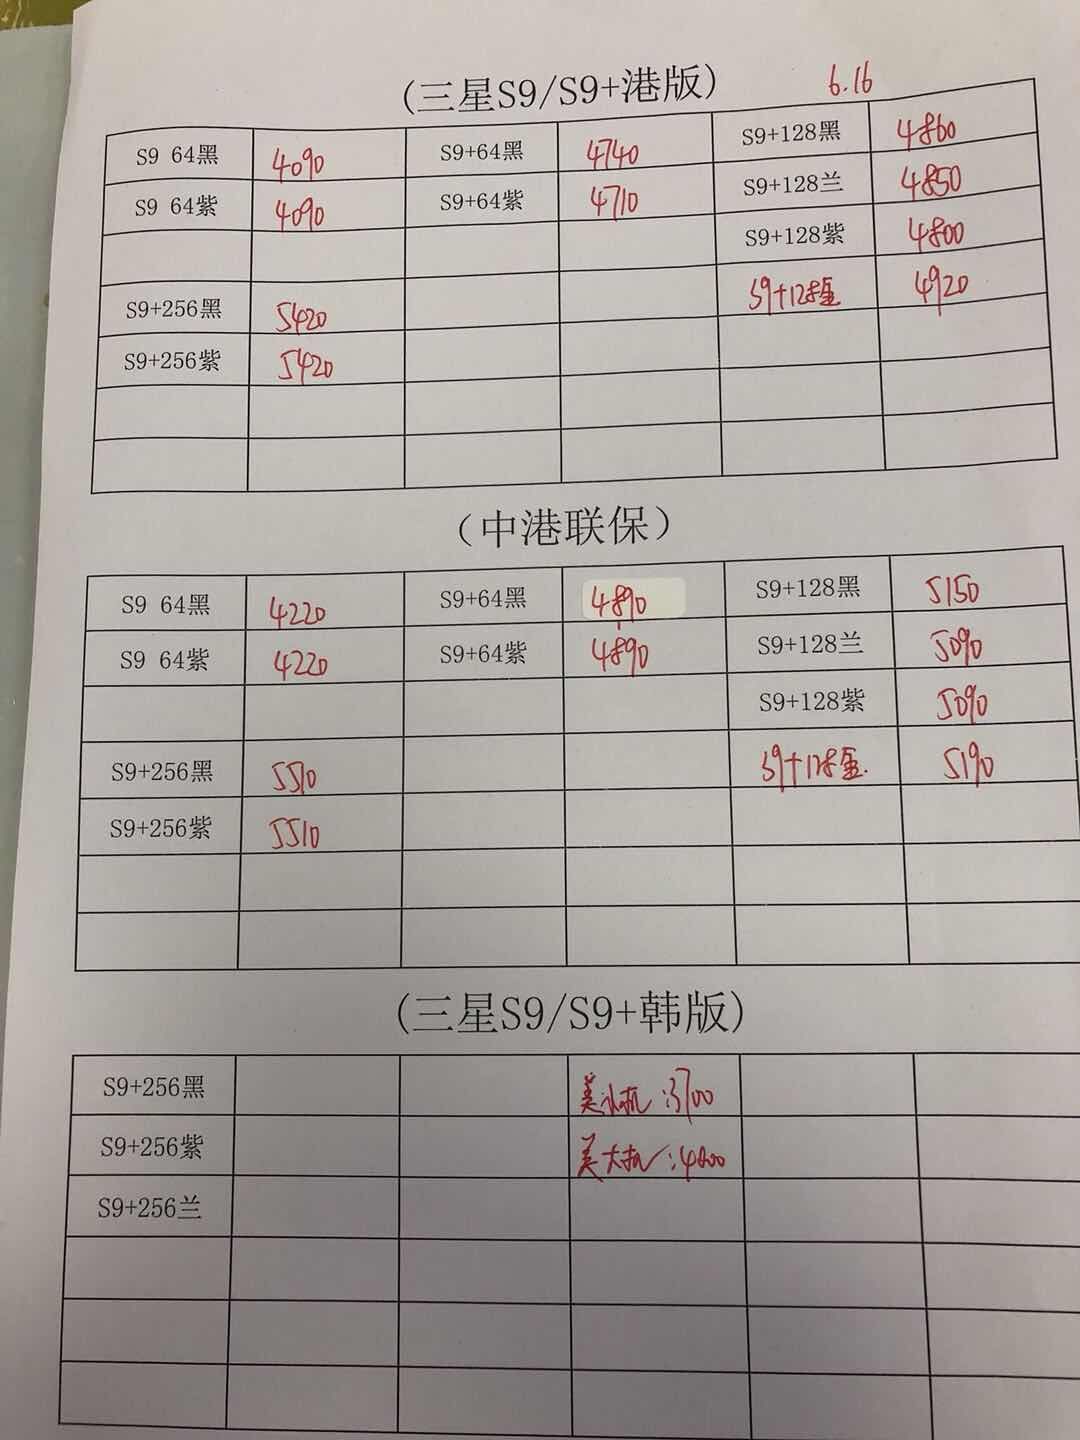 (三星S9/S9+港版) 6.16
S9 64黑 4090 S9+64黑 4740 S9+128黑 4860
S9 64紫 4090 S9+64紫 4710 S9+128兰 4850
S9+128紫 4800
S9+256黑 5420 S9+128金 4920
S9+256紫 5420
（中港联保）
S9 64黑 4220 S9+64黑 4890 S9+128黑 5150
S9 64紫 4220 S9+64紫 4890 S9+128兰 5090
S9+128紫 5090
S9+256黑 5510 S9+128金. 5190
S9+256紫 5510
(三星S9/S9+韩版)
S9+256黑 美小机:3700
S9+256紫 美大机:4200
S9+256兰